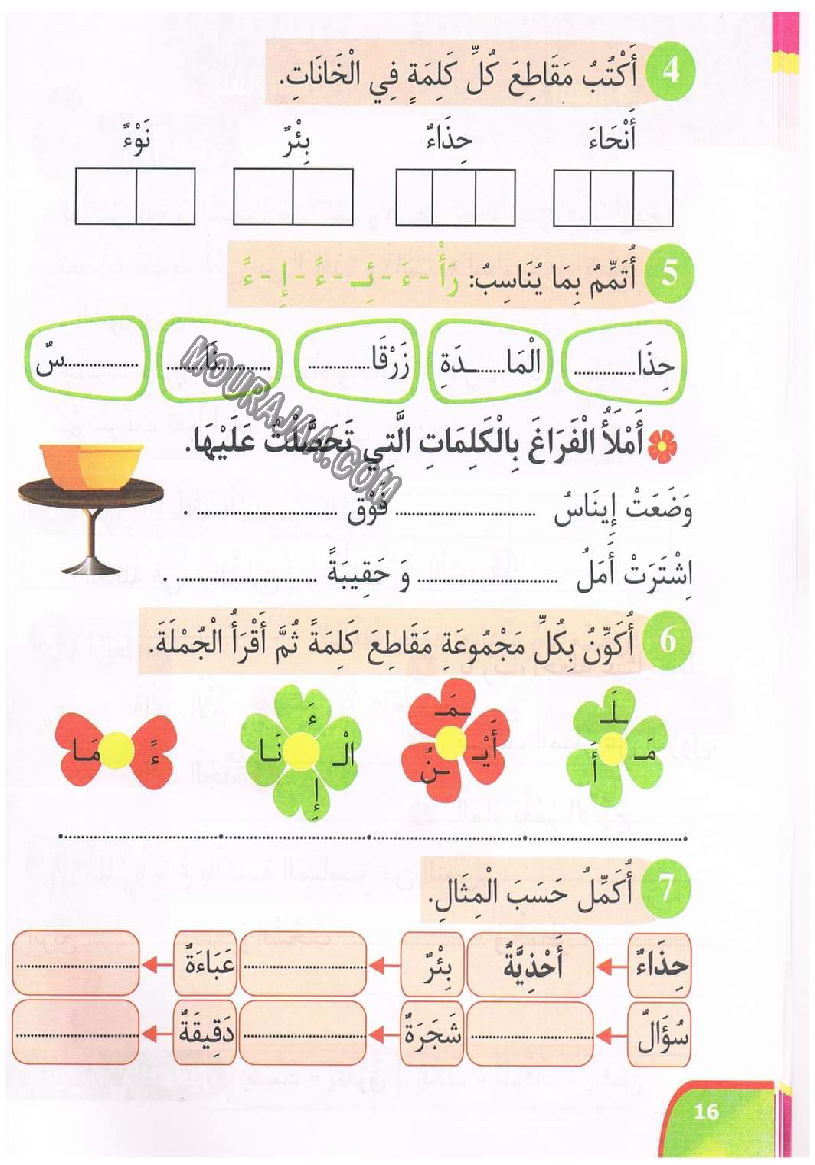 4 أَكْتُبُ مَقَاطِعَ كُلِّ كَلِمَةٍ فِي الْخَانَاتِ.
أَنْحَاءَ حِذَاءٌ بِئْرٌ نَوْءٌ
5 أُتَمِّمُ بِمَا يُنَاسِبُ: رَأْ - ءَ - ئِـ - ءً - إِ - ءً
حِذَا............ الْمَا......ـدَةِ زَرْقَا............ ..........نَا....... ...............سٌ
أَمْلَأُ الْفَرَاغَ بِالْكَلِمَاتِ الَّتِي تَحَصَّلْتُ عَلَيْهَا.
MOURAJAA.COM
وَضَعَتْ إِينَاسُ ........................ فَوْقَ ........................ .
اِشْتَرَتْ أَمَلُ ........................ وَ حَقِيبَةً ........................ .
6 أُكَوِّنُ بِكُلِّ مَجْمُوعَةِ مَقَاطِعَ كَلِمَةً ثُمَّ أَقْرَأُ الْجُمْلَةَ.
ـلَـ مَـ أَ
ـمَـ أَيْـ ـنُ
ءَ الْـ نَـا إِ
ءً مَـا
7 أُكَمِّلُ حَسَبَ الْمِثَالِ.
حِذَاءٌ أَحْذِيَّةٌ بِئْرٌ ........................ عَبَاءَةٌ ........................
سُؤَالٌ ........................ شَجَرَةٌ ........................ دَقِيقَةٌ ........................
16